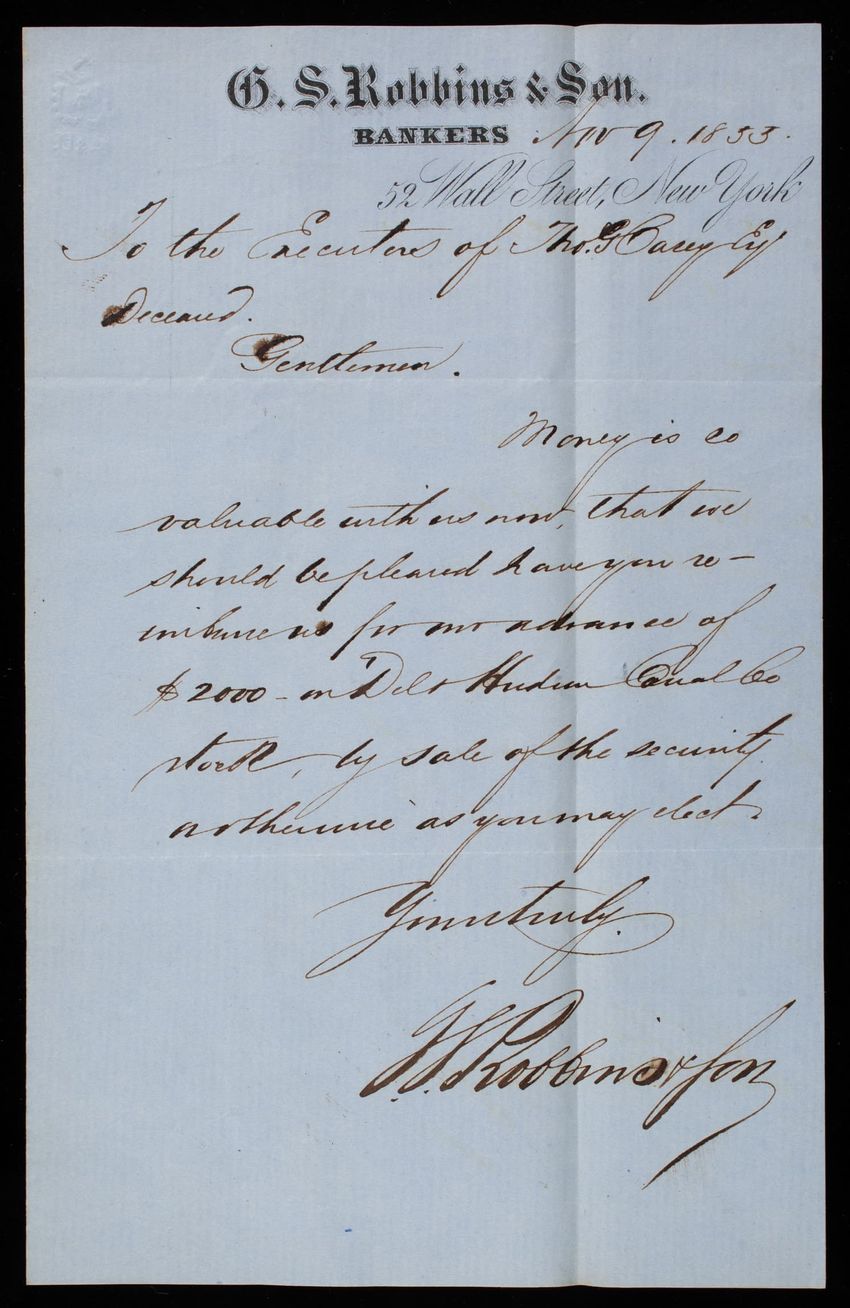 G. S. Robbins & Son.
BANKERS Nov 9. 1853.
52 Wall Street, New York
To the Executors of Tho. G Casey Esq
Deceased.
Gentlemen.
Money is so
valuable with us now, that we
should be pleased have you re-
imburse us for our advance of
$2000 - on Del & Hudson Canal Co
stock, by sale of the security
or otherwise as you may elect.
Yours truly.
G. S. Robbins & Son